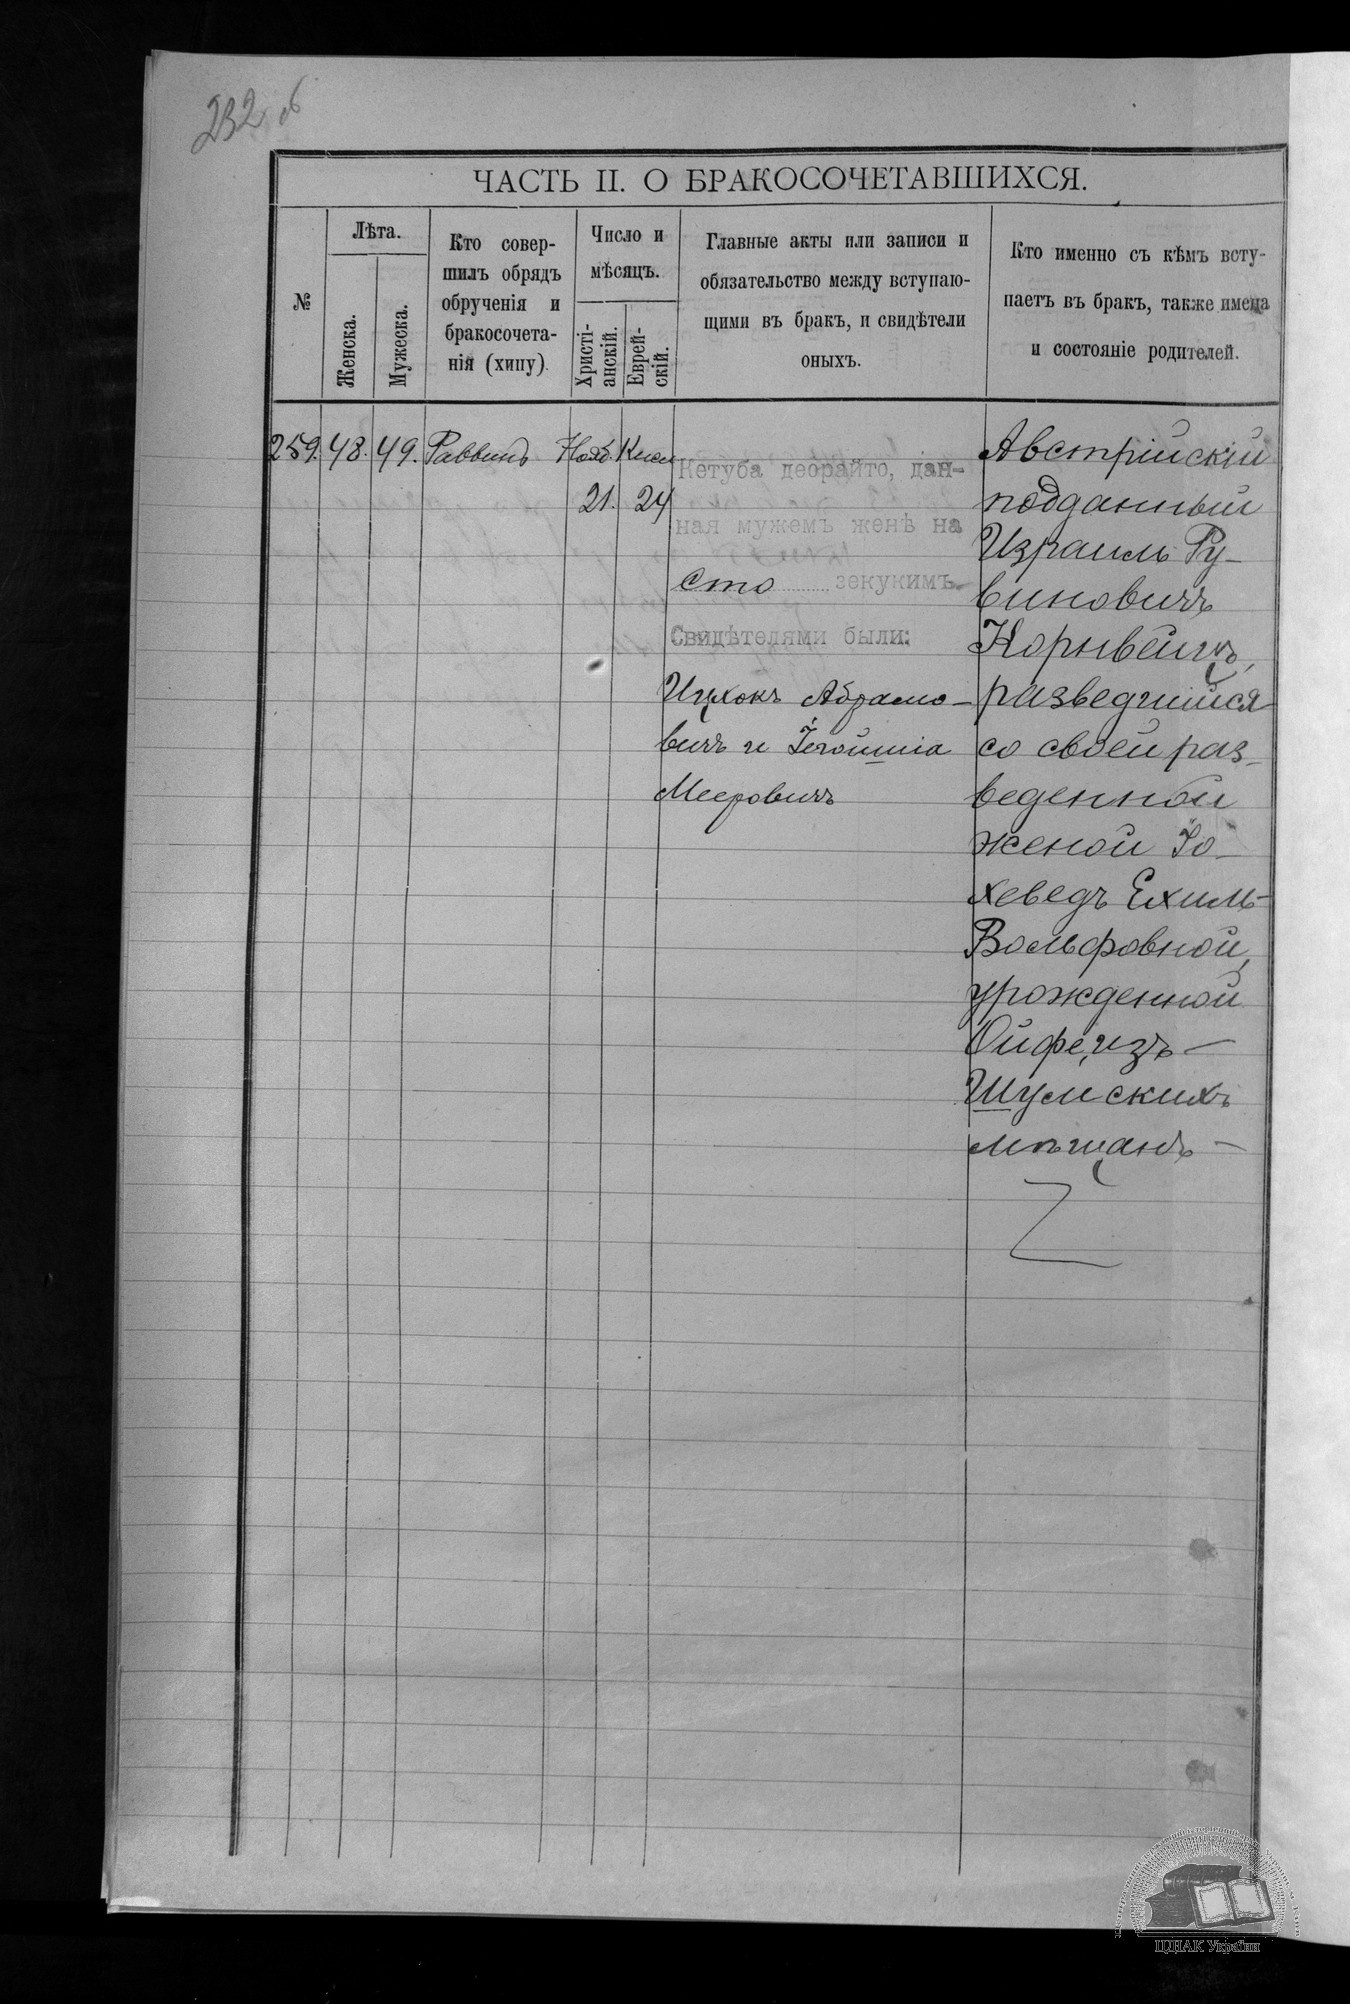 232 об
ЧАСТЬ II. О БРАКОСОЧЕТАВШИХСЯ.
№
Лѣта.
Женска.
Мужеска.
Кто совер-
шилъ обрядъ
обрученія и
бракосочета-
нія (хипу).
Число и
мѣсяцъ.
Христі-
анскій.
Еврей-
скій.
Главные акты или записи и
обязательство между вступаю-
щими въ бракъ, и свидѣтели
оныхъ.
Кто именно съ кѣмъ всту-
паетъ въ бракъ, также имена
и состояніе родителей.
259. 48. 49. Раввинъ Нояб. Кисл
21. 24
Кетуба деорайто, дан-
ная мужемъ женѣ на
сто зекукимъ.
Свидѣтелями были:
Ицхокъ Абрамо-
вичъ и Іегойшіа
Мееровичъ
Австрійскій
подданный
Израиль Ру-
виновичъ
Корнвейцъ,
разведшійся
со своей раз-
веденной
женой Іо-
хеведъ Ехиль-
Вольфовной,
урожденной
Ойфенгзъ —
Шумскихъ
мѣщанъ —
ЦДІАК України